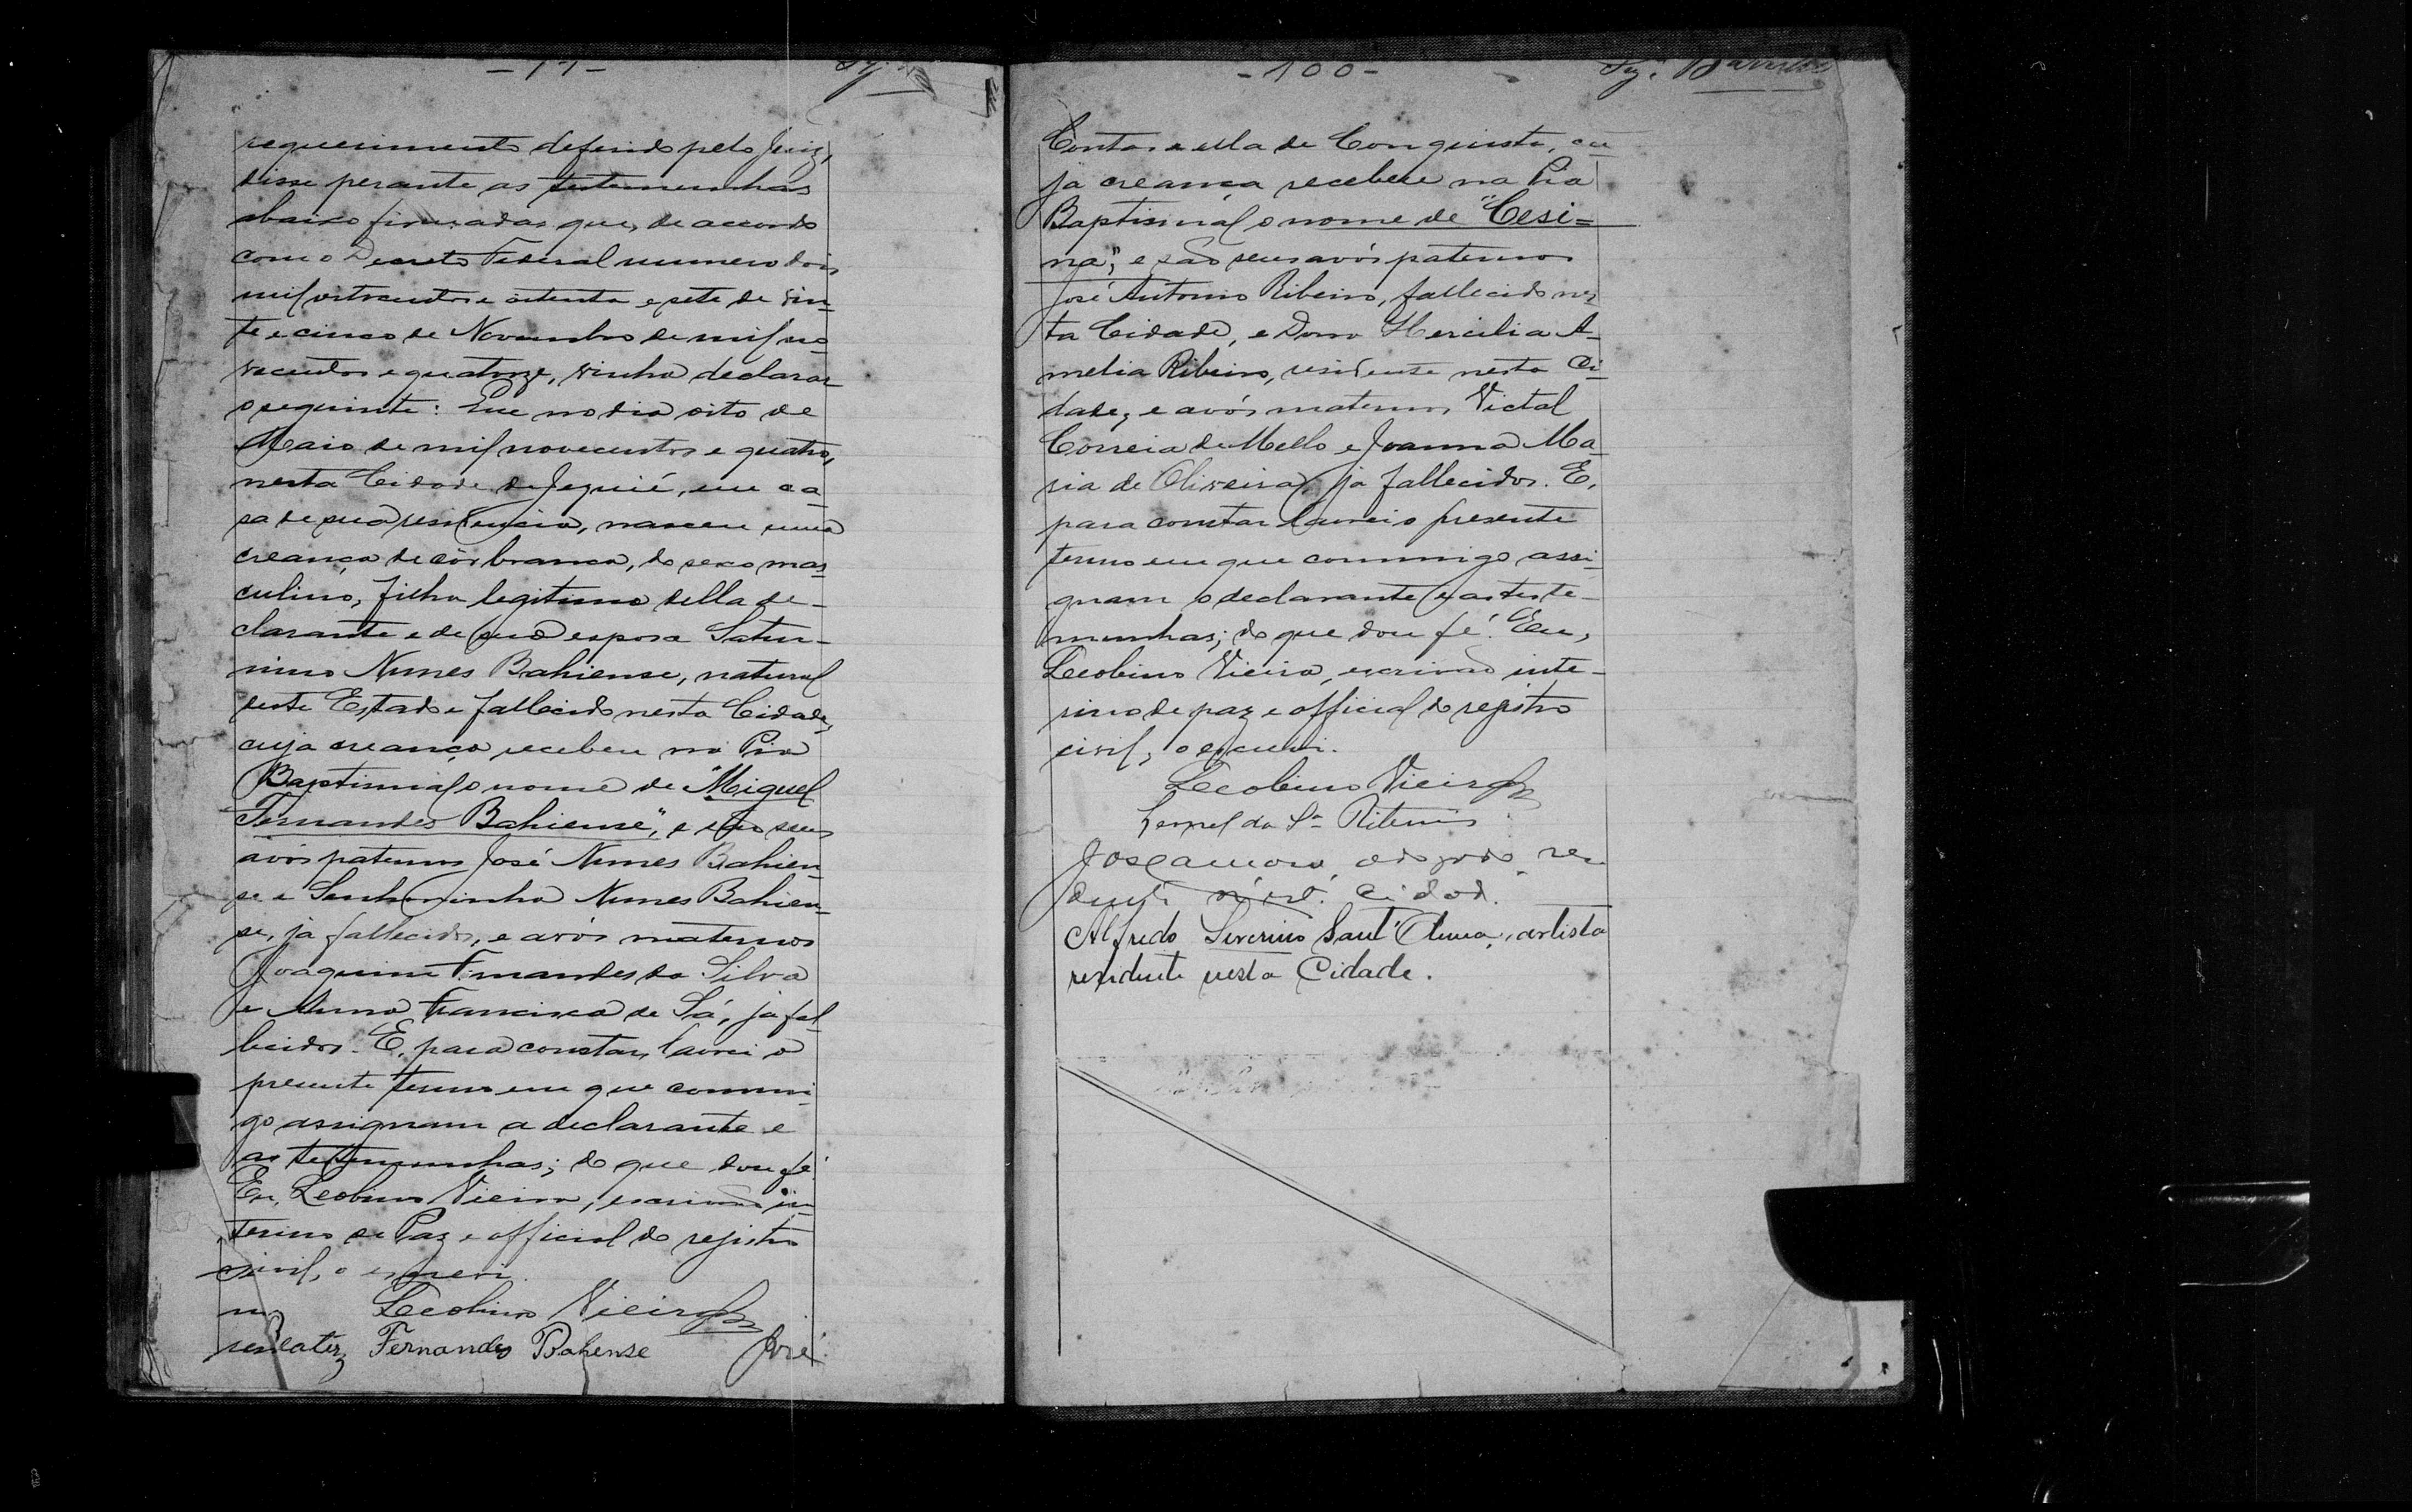 requerimento deferido pelo Juiz,
disse perante as testemunhas
abaixo firmadas que, de accordo
com o Decreto Federal numero dois
mil oitocentos e oitenta e sete de vin-
te e cinco de Novembro de mil no-
vecentos e quatorze, vinha declarar
o seguinte: Que no dia oito de
Maio de mil novecentos e quatro,
nesta Cidade de Jequié, em ca-
sa de sua residencia, nasceu uma
creança de côr branca, do sexo mas-
culino, filho legitimo della de-
clarante e de seu esposo Satur-
nino Nunes Bahiense, natural
deste Estado e fallecido nesta Cidade,
cuja creança recebeu na Pia
Baptismal o nome de "Miguel
Fernandes Bahiense", e são seus
avós paternos José Nunes Bahien-
se e Senhorinha Nunes Bahien-
se, já fallecidos, e avós maternos
Joaquim Fernandes da Silva
e Anna Francisca de Sá, já fal-
lecidos. E, para constar, lavrei o
presente termo em que commi-
go assignam a declarante e
as testemunhas; do que dou fé.
Eu, Leobino Vieira, escrivão in-
terino de Paz e official do registro
civil, o escrevi.
Leobino Vieira
Fernandes Bahense José
- 100 -
Contas e ella de Conquista, cu-
ja creança recebeu na Pia
Baptismal o nome de "Cesi=
na"; e são seus avós paternos
José Antonio Ribeiro, fallecido nes-
ta Cidade, e Dona Hercilia A-
melia Ribeiro, residente nesta Ci-
dade; e avós maternos Victal
Correia de Mello e Joanna Ma-
ria de Oliveira, já fallecidos. E,
para constar lavrei o presente
termo em que commigo assi-
gnam o declarante e as teste-
munhas; do que dou fé. Eu,
Leobino Vieira, escrivão inte-
rino de paz e official do registro
civil, o escrevi.
Leobino Vieira
da Sª Ribeiro
Cidad.
Alfredo Severino Sant'Anna, artista
residente nesta Cidade.